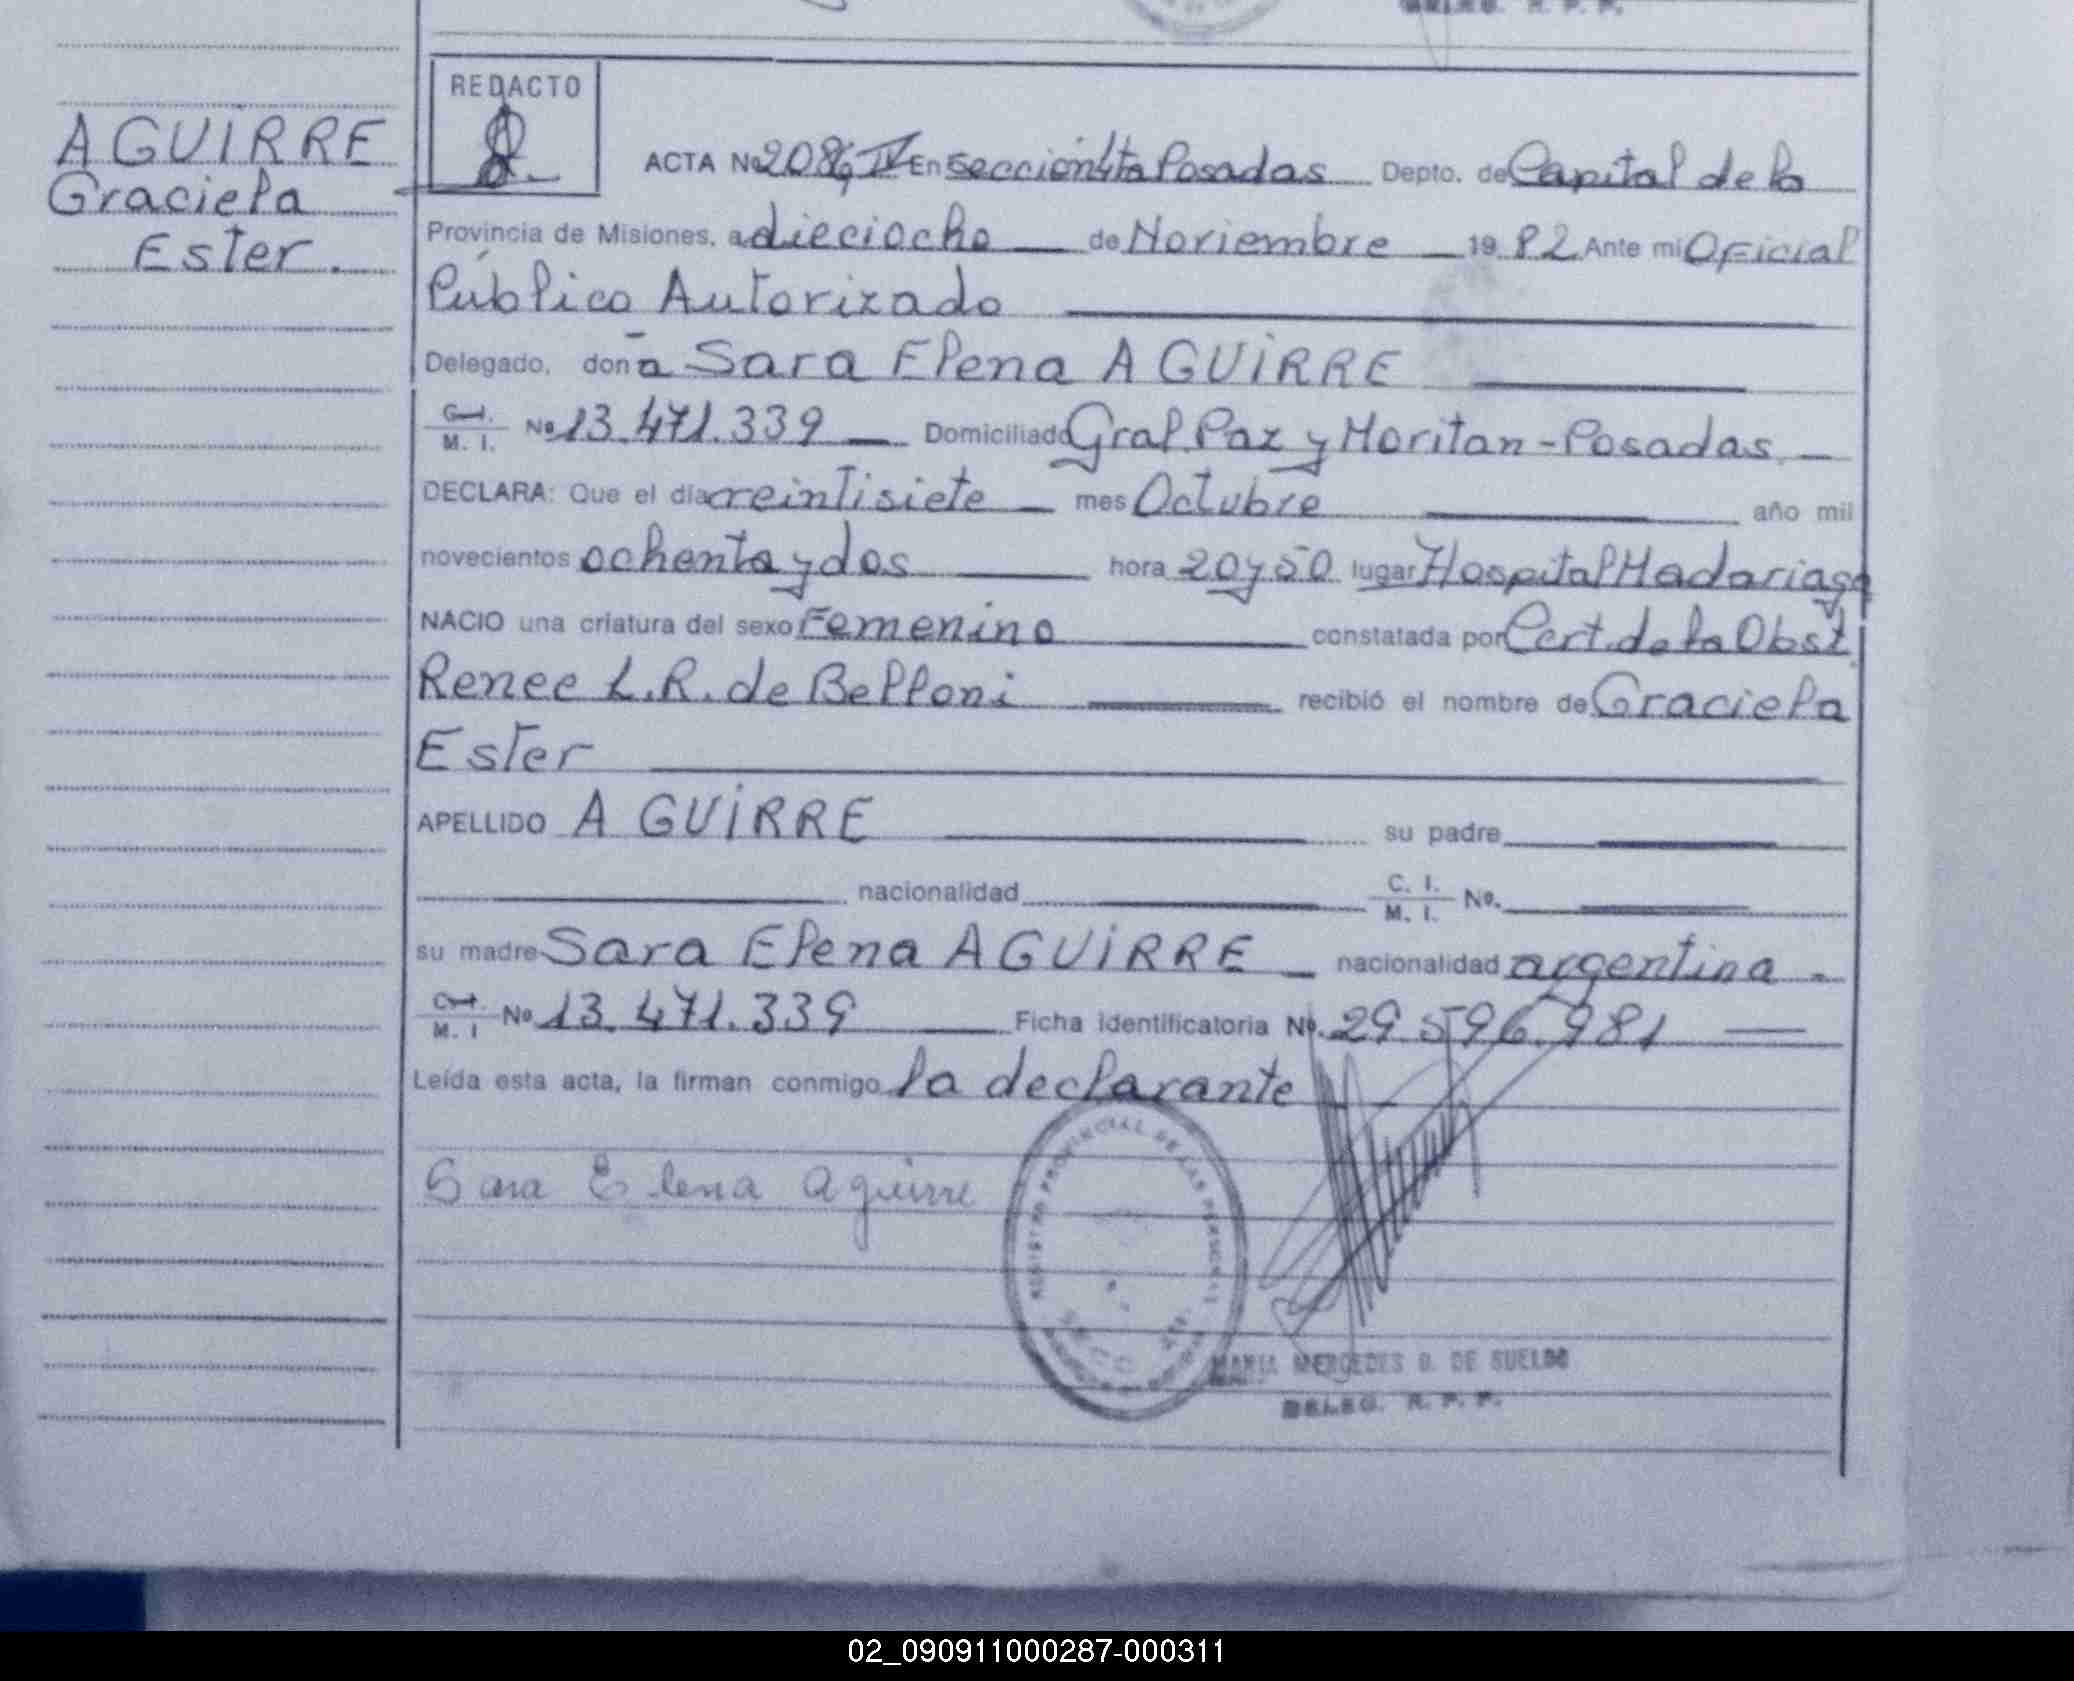 DELEG. R. P. P.
REDACTO
AGUIRRE
Graciela
Ester.
ACTA No 2086, IV En Sección 4ta Posadas Depto. de Capital de la
Provincia de Misiones, a dieciocho de Noviembre 19 82 Ante mi Oficial
Público Autorizado
Delegado, doña Sara Elena AGUIRRE
M. I. No 13.471.339 Domiciliado Gral. Paz y Moritan - Posadas.
DECLARA: Que el día veintisiete mes Octubre año mil
novecientos ochenta y dos hora 20 y 50 lugar Hospital Madariaga
NACIO una criatura del sexo Femenino constatada por Cert. de la Obst.
Renee L.R. de Belloni recibió el nombre de Graciela
Ester
APELLIDO AGUIRRE su padre
nacionalidad C. I. M. I. No.
su madre Sara Elena AGUIRRE nacionalidad argentina
M. I No 13.471.339 Ficha identificatoria No. 29.596.981
Leída esta acta, la firman conmigo la declarante
Sara Elena Aguirre
REGISTRO PROVINCIAL DE LAS PERSONAS
MARIA MERCEDES D. DE SUELDO
DELEG. R. P. P.
02_090911000287-000311